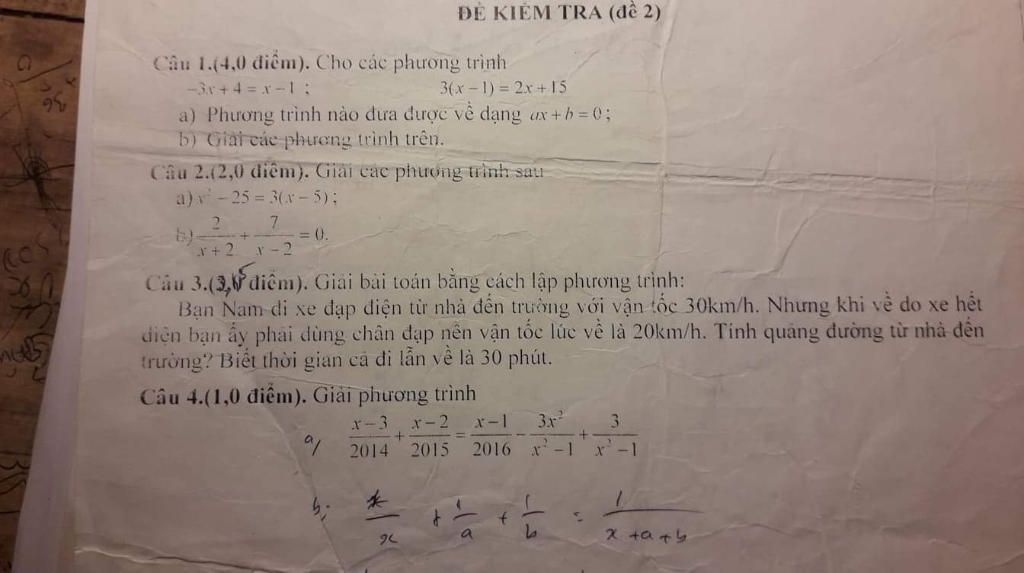 ĐỀ KIỂM TRA (đề 2)
Câu 1.(4,0 điểm). Cho các phương trình
-3x + 4 = x - 1 ; 3(x - 1) = 2x + 15
a) Phương trình nào đưa được về dạng ax + b = 0 ;
b) Giải các phương trình trên.
Câu 2.(2,0 điểm). Giải các phương trình sau
a) x² - 25 = 3(x - 5) ;
b) 2/(x + 2) + 7/(x - 2) = 0.
Câu 3.(3, điểm). Giải bài toán bằng cách lập phương trình:
Bạn Nam đi xe đạp điện từ nhà đến trường với vận tốc 30km/h. Nhưng khi về do xe hết
điện bạn ấy phải dùng chân đạp nên vận tốc lúc về là 20km/h. Tính quãng đường từ nhà đến
trường? Biết thời gian cả đi lẫn về là 30 phút.
Câu 4.(1,0 điểm). Giải phương trình
a, (x - 3)/2014 + (x - 2)/2015 = (x - 1)/2016 - 3x²/(x² - 1) + 3/(x² - 1)
b; 1/x + 1/a + 1/b = 1/(x + a + b)